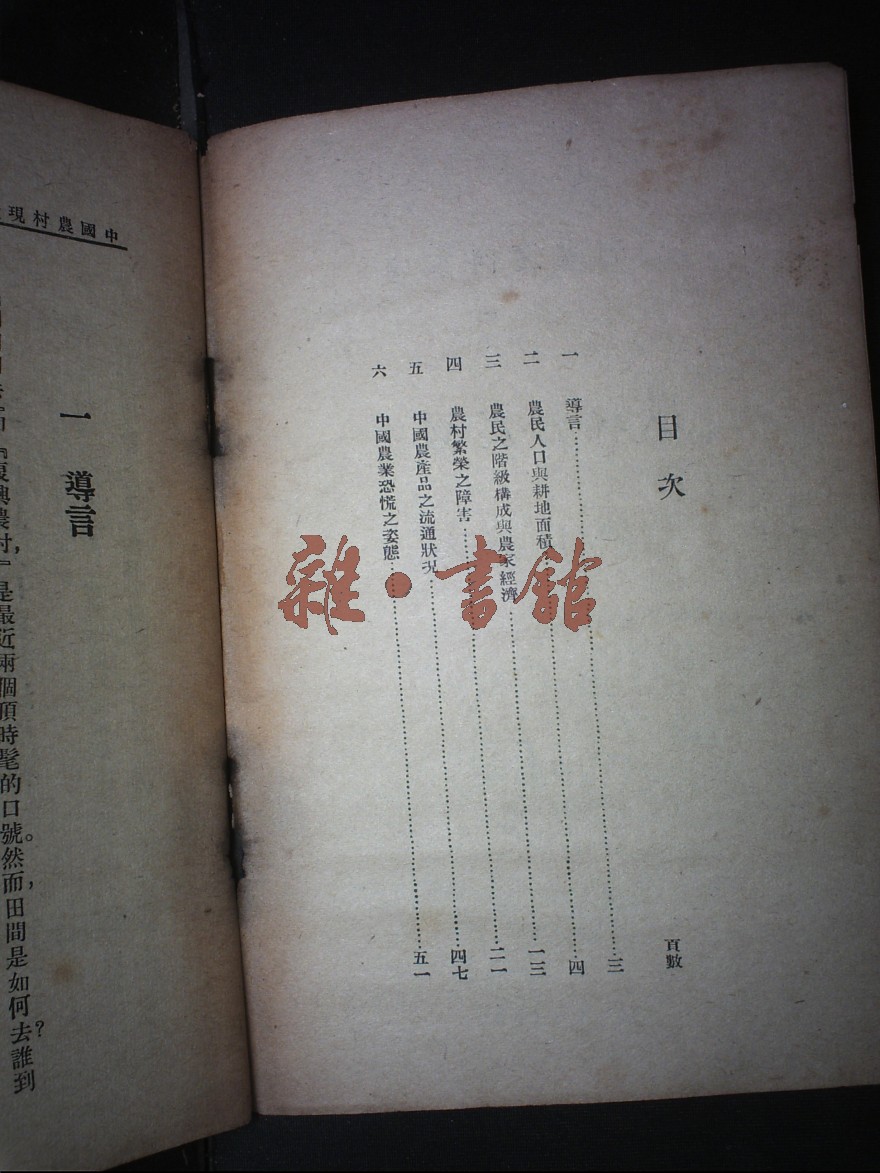 目次
頁數
一 導言……三
二 農民人口與耕地面積……四
三 農民之階級構成與農家經濟……一三
四 農村繁榮之障害……二一
五 中國農產品之流通狀況……四七
六 中國農業恐慌之姿態……五一
中國農村現
一 導言
『復興農村,』是最近兩個頂時髦的口號。然而,田間是如何去?誰到
雜·書館